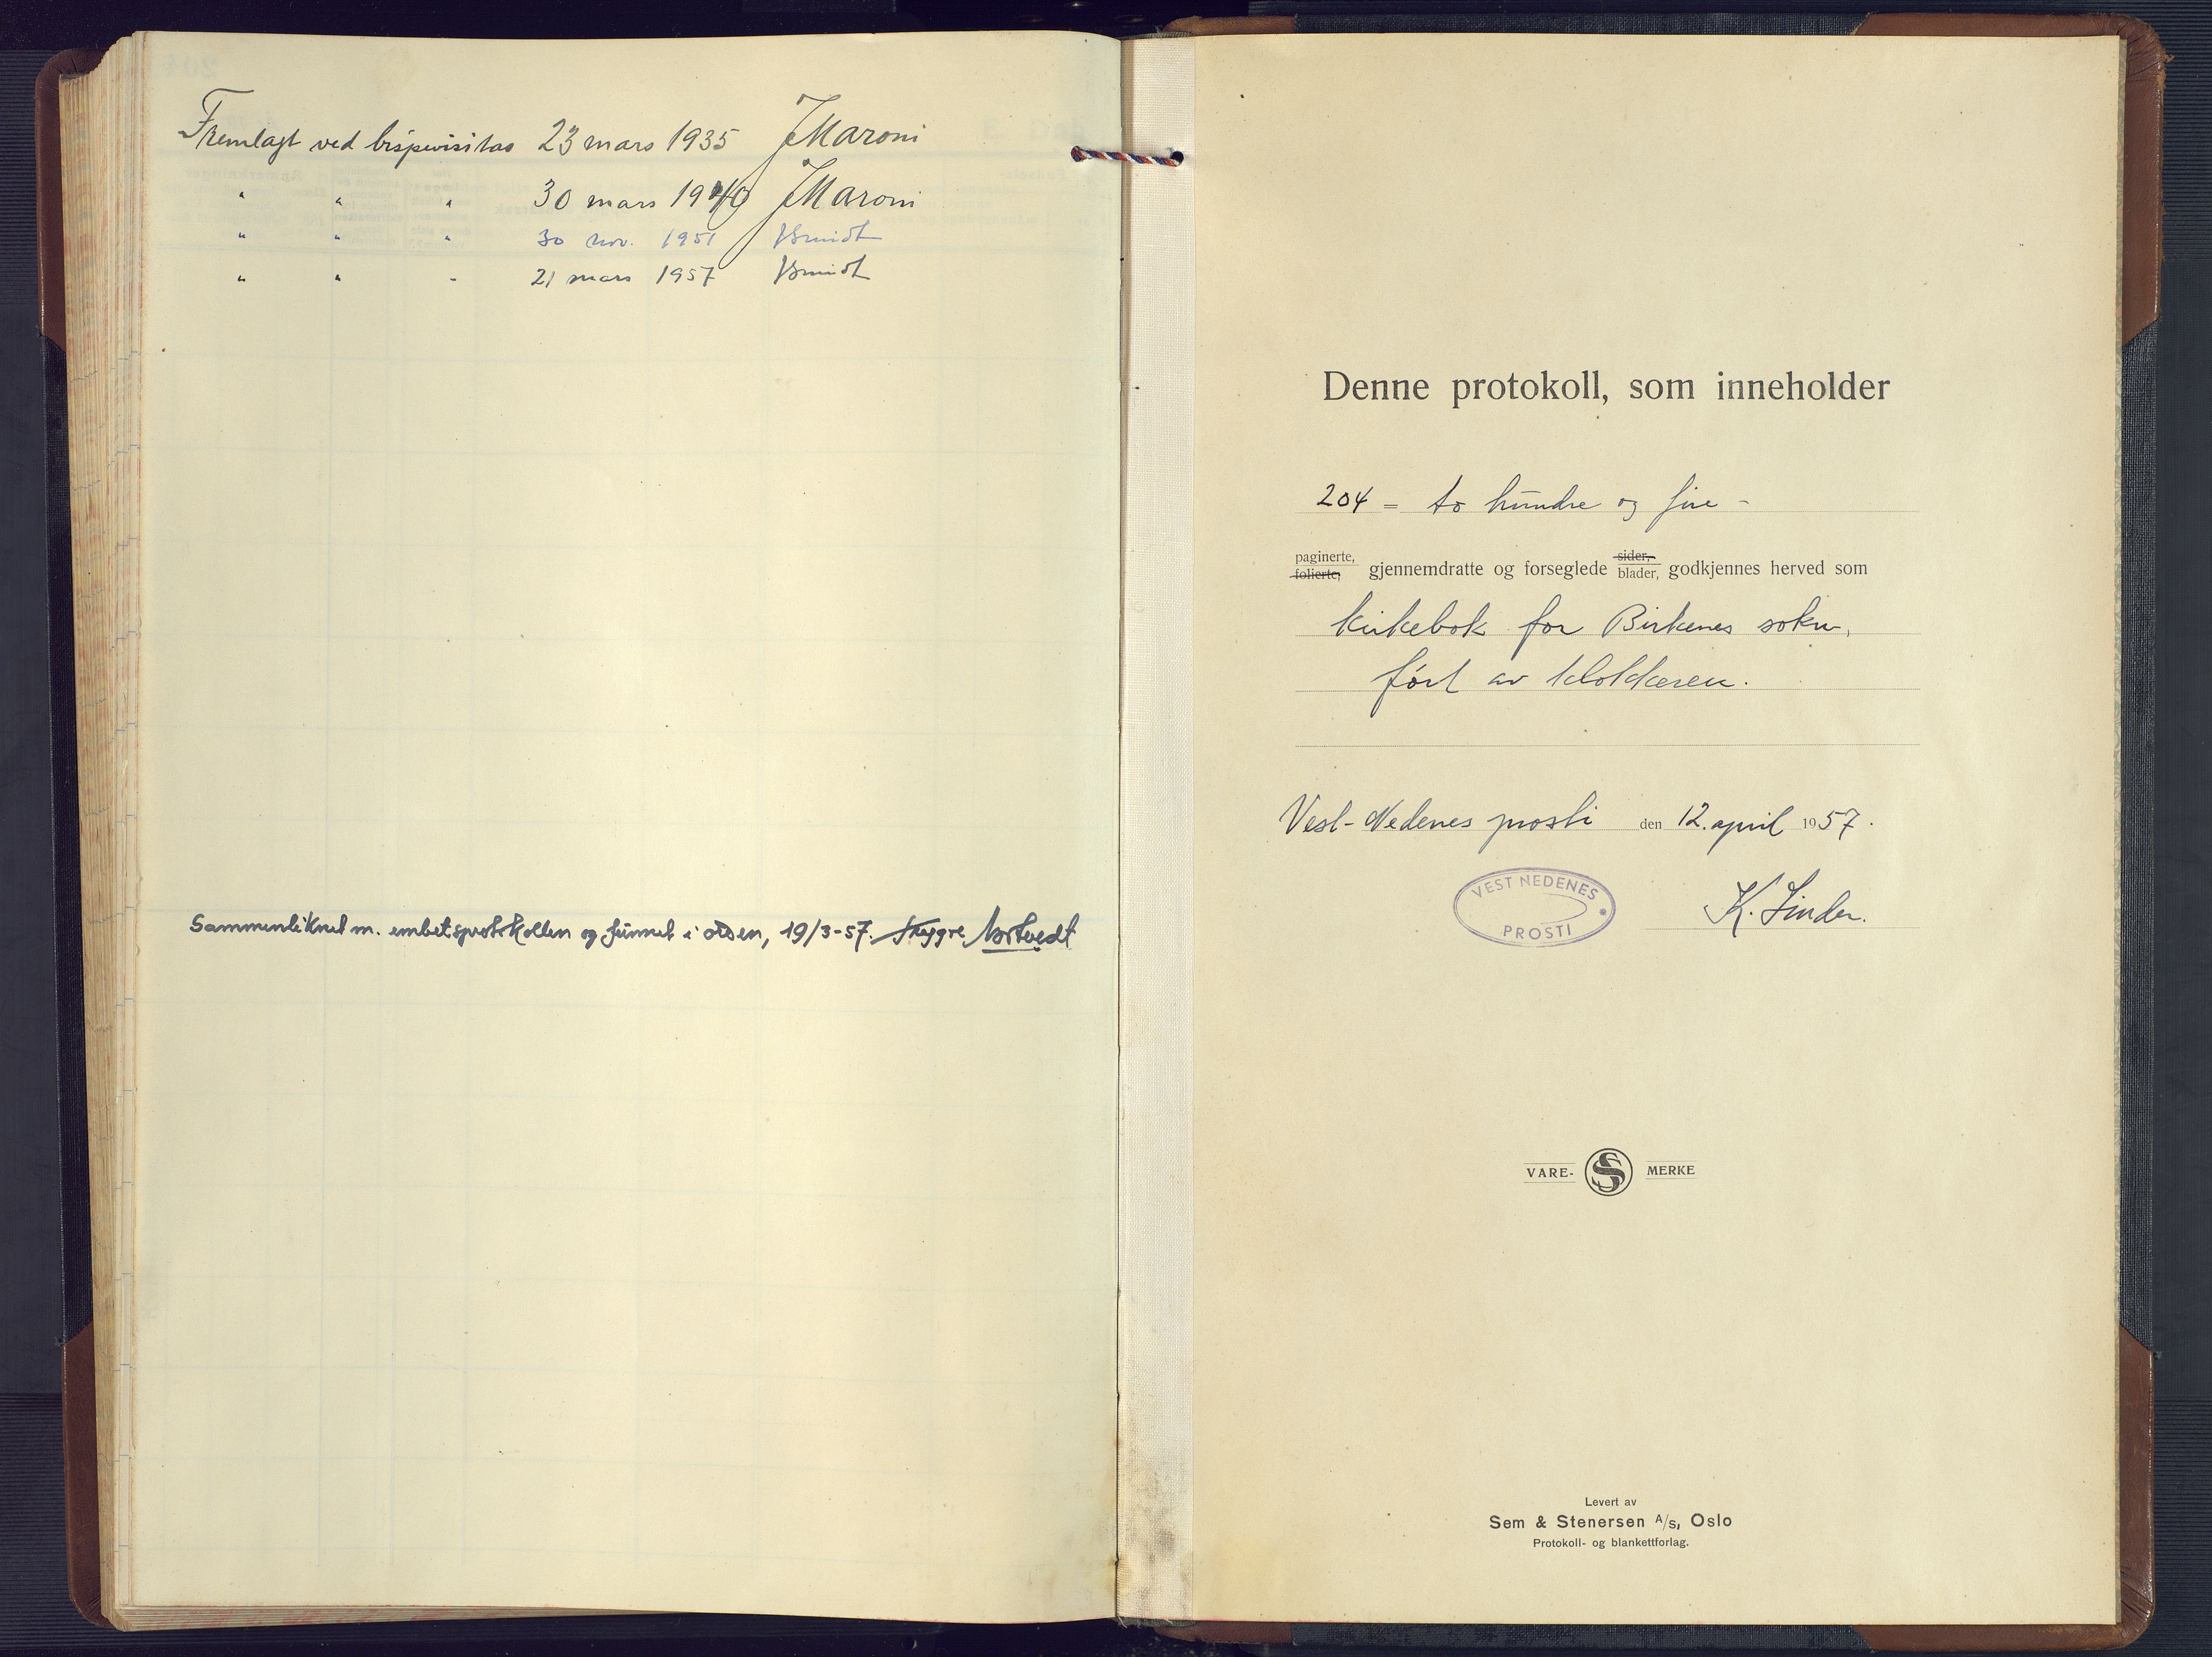 Fremlagt ved bispevisitas 23 mars 1935 JMaroni
" " " 30 mars 1940 JMaroni
" " " 30 nov. 1951 JSmidt
" " - 21 mars 1957 JSmidt
Sammenliknet m. embetsprotokollen og funnet i orden, 19/3-57. Trygve Nortvedt
Denne protokoll, som inneholder
204 = to hundre og fire -
paginerte,
folierte, gjennemdratte og forseglede sider,
blader, godkjennes herved som
kirkebok for Birkenes sokn,
ført av klokkeren.
Vest-Nedenes prosti den 12. april 1957.
VEST NEDENES
PROSTI
K. Linder.
VARE- S MERKE
Levert av
Sem & Stenersen A/s, Oslo
Protokoll- og blankettforlag.